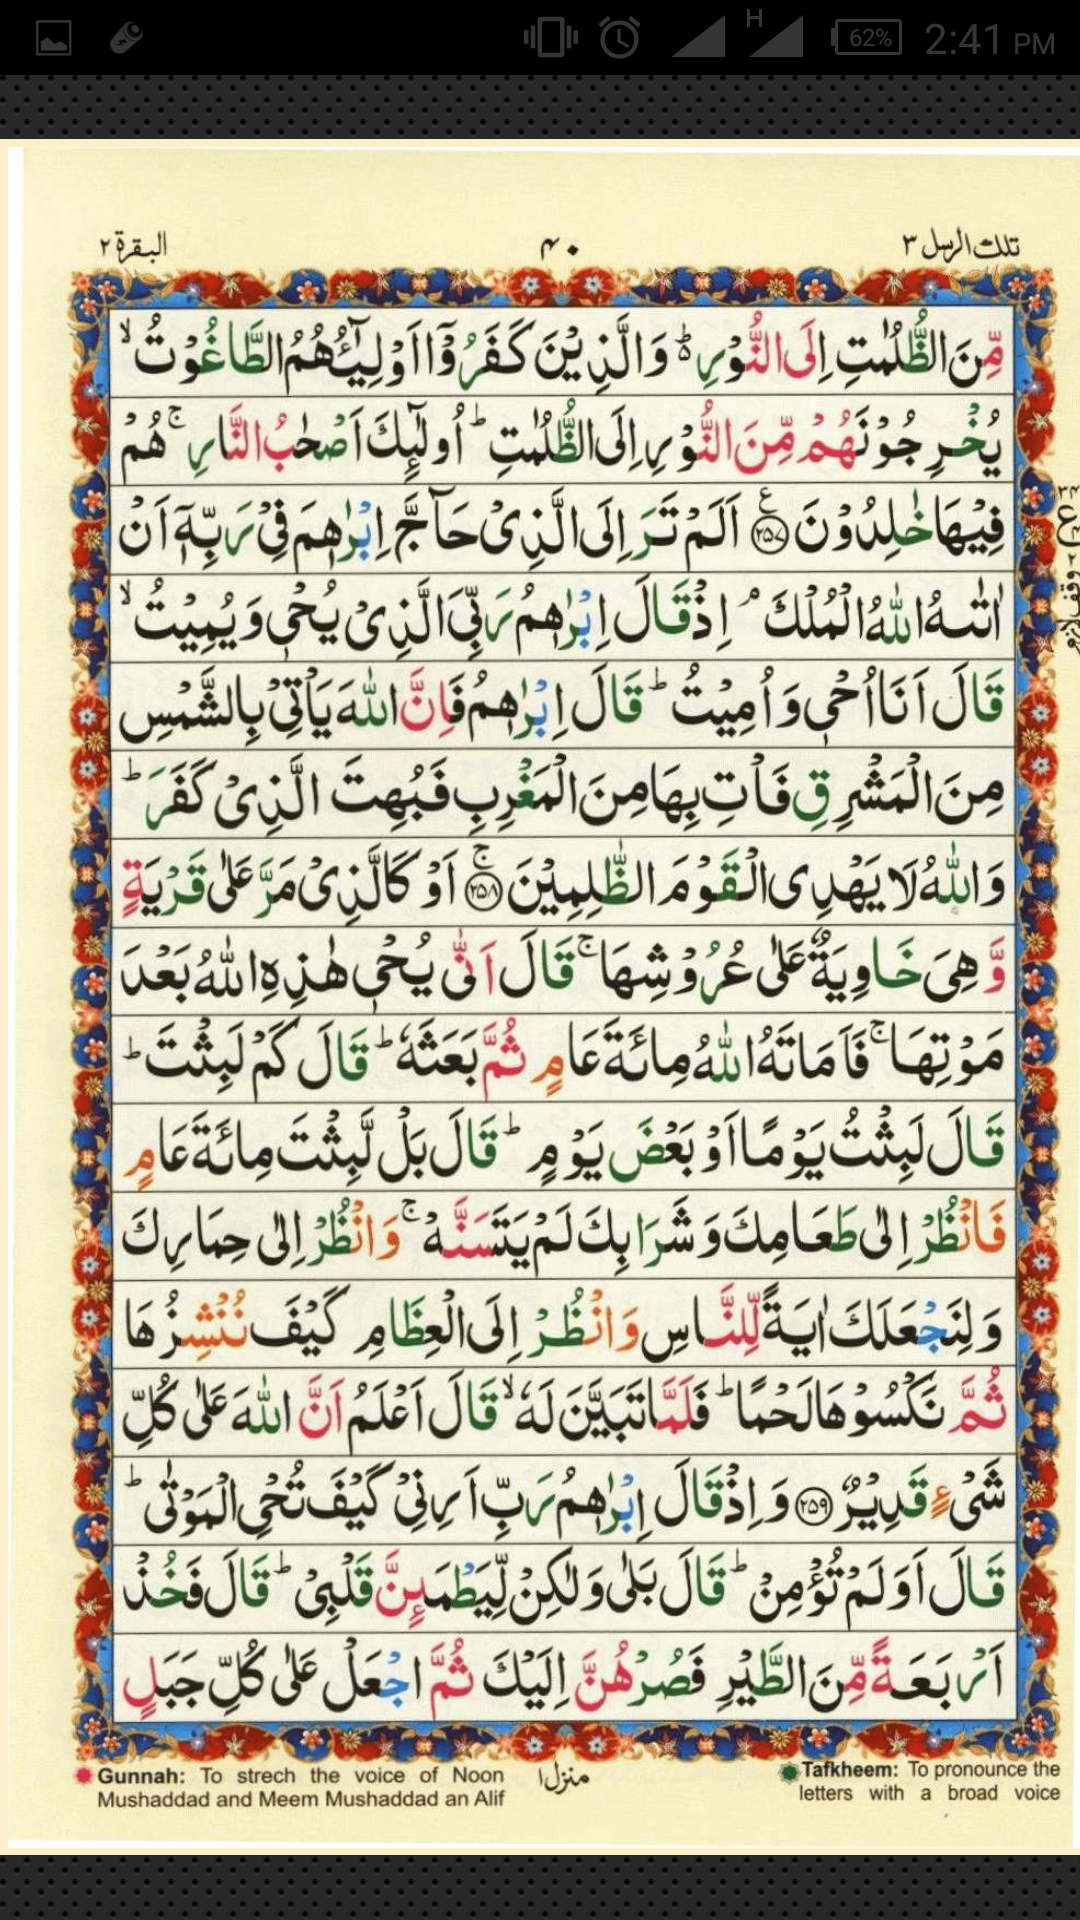 H 62% 2:41 PM
تلك الرسل ٣ ٤٠ البقرة ٢
مِّنَ الظُّلُمٰتِ اِلَى النُّوْرِ ؕ۬ وَالَّذِيْنَ كَفَرُوْۤا اَوْلِيٰٓـُٔهُمُ الطَّاغُوْتُ ۙ
يُخْرِجُوْنَهُمْ مِّنَ النُّوْرِ اِلَى الظُّلُمٰتِ ؕ اُولٰٓئِكَ اَصْحٰبُ النَّارِ ۚ هُمْ
فِيْهَا خٰلِدُوْنَ ﴿٢٥٧﴾ اَلَمْ تَرَ اِلَى الَّذِىْ حَآجَّ اِبْرٰهٖمَ فِىْ رَبِّهٖۤ اَنْ
اٰتٰىهُ اللّٰهُ الْمُلْكَ ۘ اِذْ قَالَ اِبْرٰهٖمُ رَبِّىَ الَّذِىْ يُحْىٖ وَ يُمِيْتُ ۙ
قَالَ اَنَا اُحْىٖ وَ اُمِيْتُ ؕ قَالَ اِبْرٰهٖمُ فَاِنَّ اللّٰهَ يَاْتِىْ بِالشَّمْسِ
مِنَ الْمَشْرِقِ فَاْتِ بِهَا مِنَ الْمَغْرِبِ فَبُهِتَ الَّذِىْ كَفَرَ ؕ
وَاللّٰهُ لَا يَهْدِى الْقَوْمَ الظّٰلِمِيْنَ ۚ﴿٢٥٨﴾ اَوْ كَالَّذِىْ مَرَّ عَلٰى قَرْيَةٍ
وَّ هِىَ خَاوِيَةٌ عَلٰى عُرُوْشِهَا ۚ قَالَ اَنّٰى يُحْىٖ هٰذِهِ اللّٰهُ بَعْدَ
مَوْتِهَا ۚ فَاَمَاتَهُ اللّٰهُ مِائَةَ عَامٍ ثُمَّ بَعَثَهٗ ؕ قَالَ كَمْ لَبِثْتَ ؕ
قَالَ لَبِثْتُ يَوْمًا اَوْ بَعْضَ يَوْمٍ ؕ قَالَ بَلْ لَّبِثْتَ مِائَةَ عَامٍ
فَانْظُرْ اِلٰى طَعَامِكَ وَ شَرَابِكَ لَمْ يَتَسَنَّهْ ۚ وَانْظُرْ اِلٰى حِمَارِكَ
وَلِنَجْعَلَكَ اٰيَةً لِّلنَّاسِ وَانْظُرْ اِلَى الْعِظَامِ كَيْفَ نُنْشِزُهَا
ثُمَّ نَكْسُوْهَا لَحْمًا ؕ فَلَمَّا تَبَيَّنَ لَهٗ ۙ قَالَ اَعْلَمُ اَنَّ اللّٰهَ عَلٰى كُلِّ
شَىْءٍ قَدِيْرٌ ﴿٢٥٩﴾ وَ اِذْ قَالَ اِبْرٰهٖمُ رَبِّ اَرِنِىْ كَيْفَ تُحْىِ الْمَوْتٰى ؕ
قَالَ اَوَلَمْ تُؤْمِنْ ؕ قَالَ بَلٰى وَلٰكِنْ لِّيَطْمَئِنَّ قَلْبِىْ ؕ قَالَ فَخُذْ
اَرْبَعَةً مِّنَ الطَّيْرِ فَصُرْهُنَّ اِلَيْكَ ثُمَّ اجْعَلْ عَلٰى كُلِّ جَبَلٍ
Gunnah: To strech the voice of Noon
Mushaddad and Meem Mushaddad an Alif
منزل١
Tafkheem: To pronounce the
letters with a broad voice